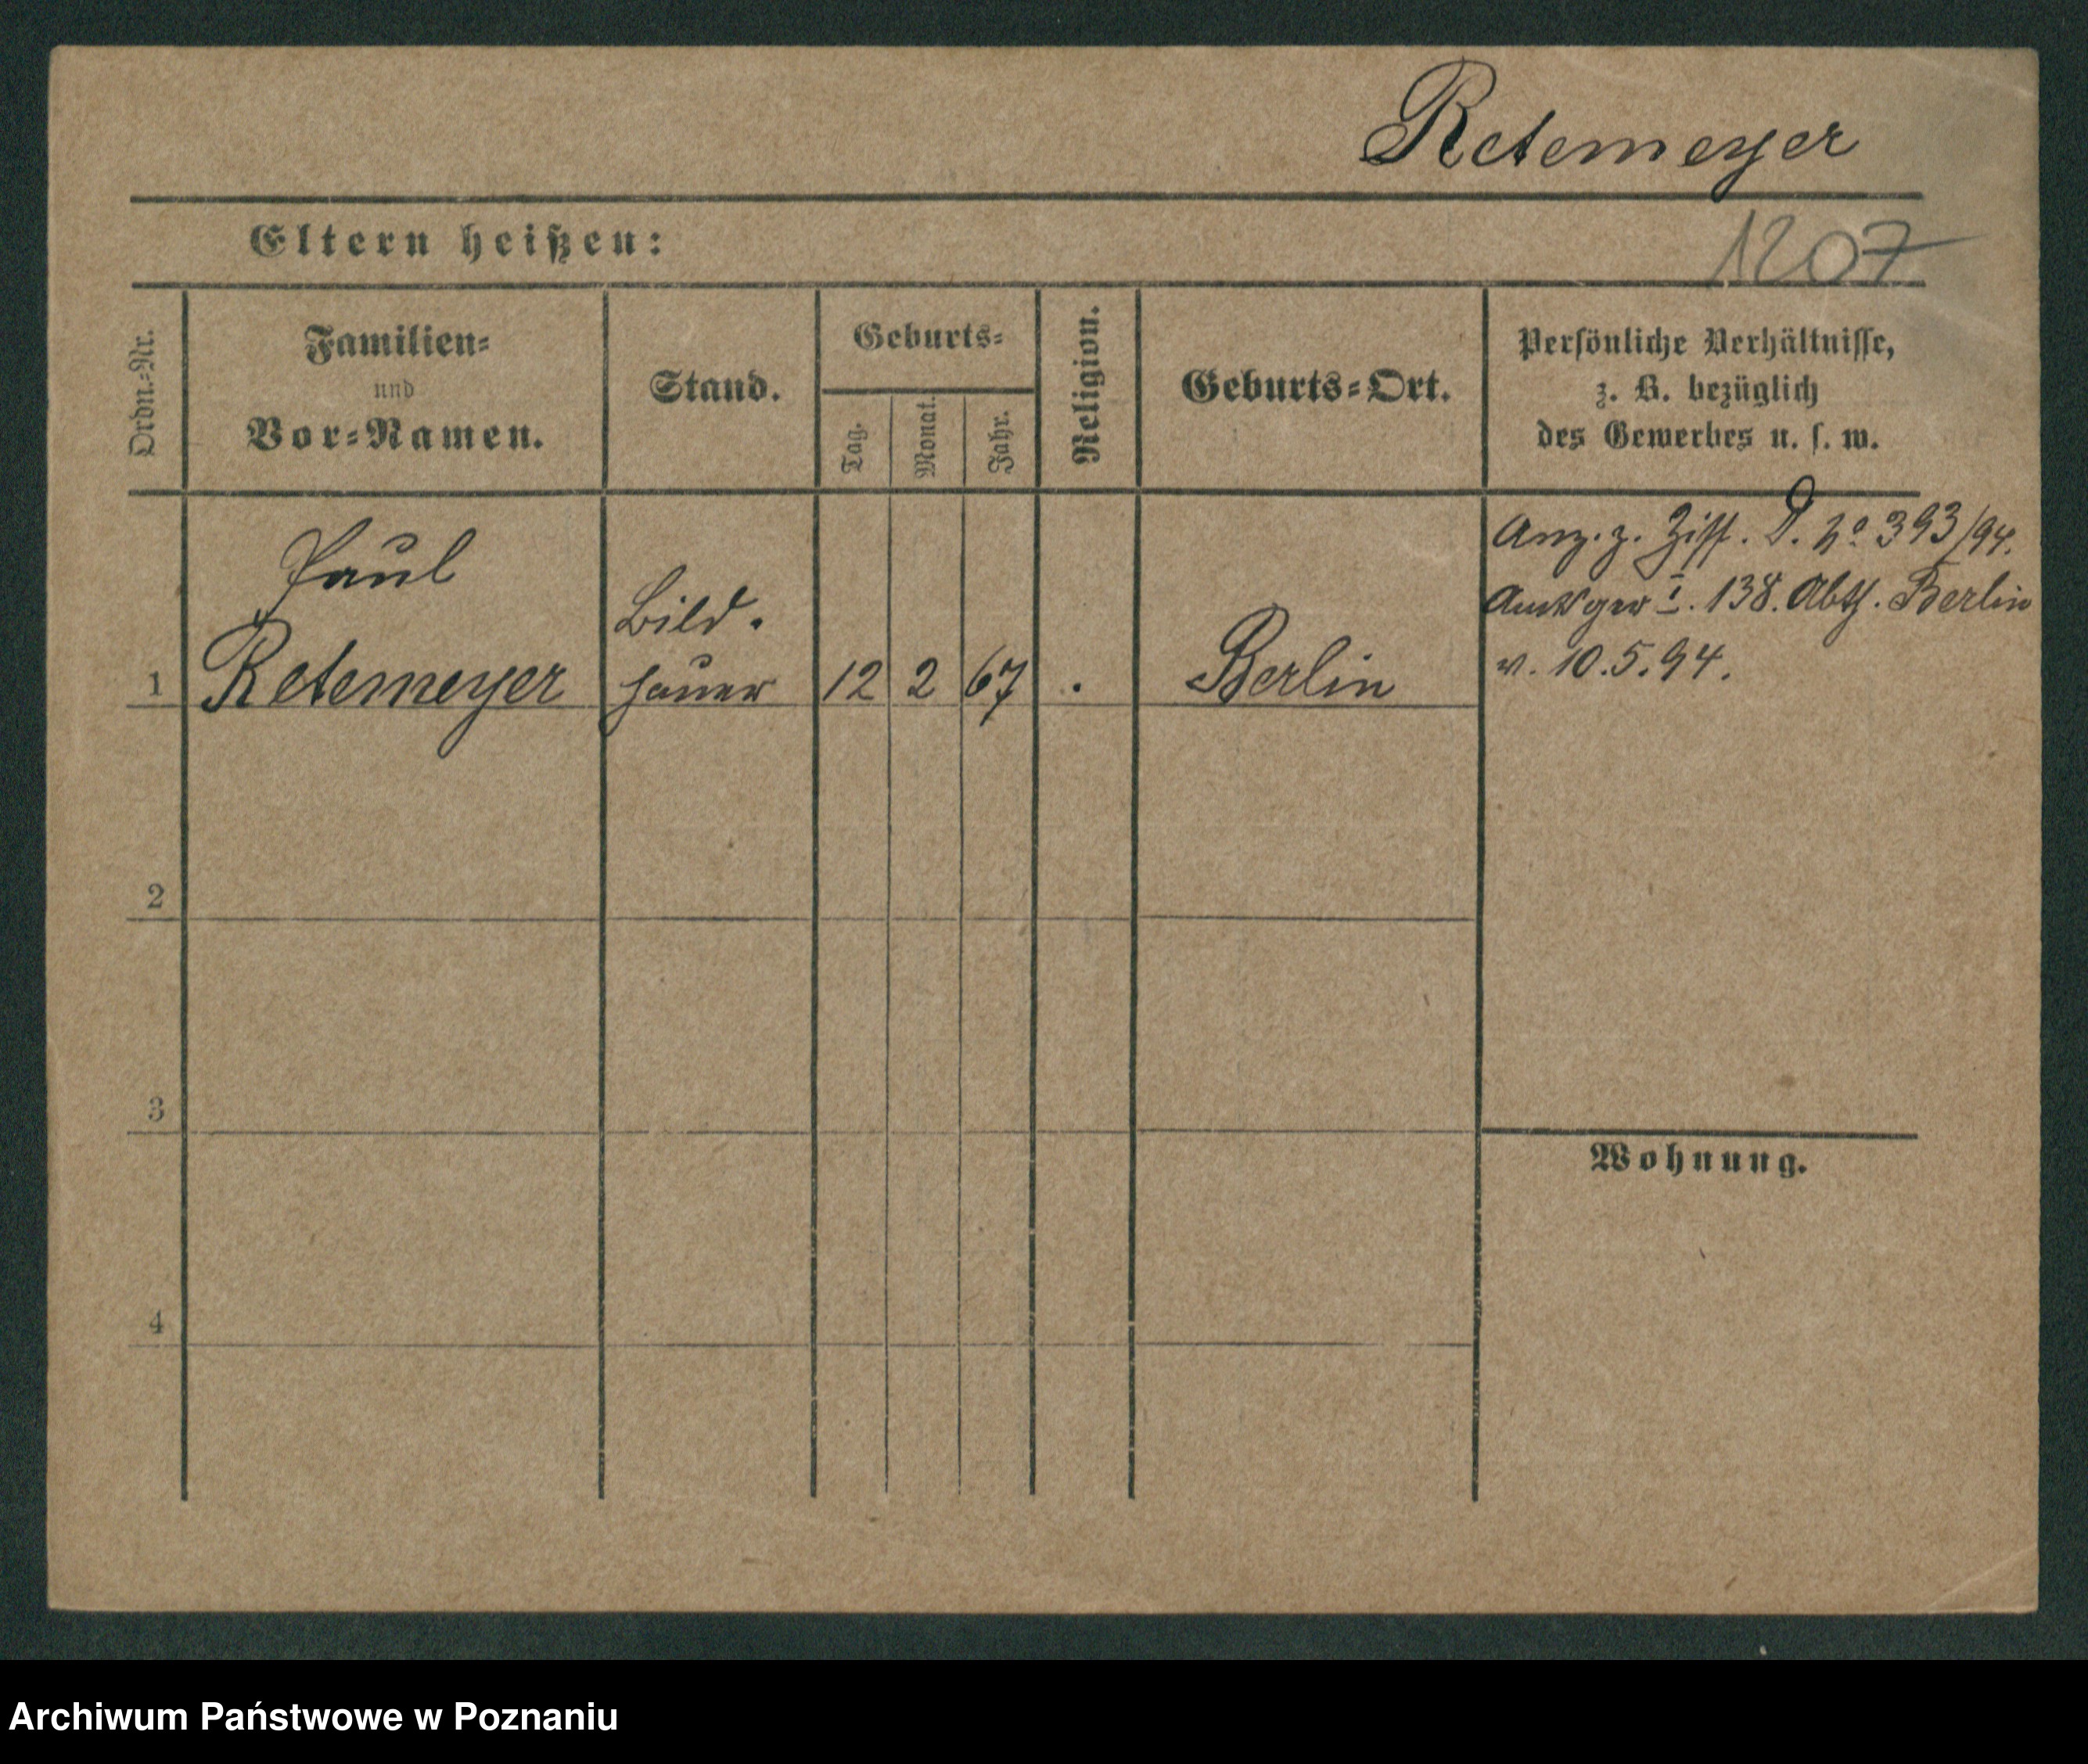 Retemeyer
Eltern heißen:
1207
Ordn.-Nr.
Familien-
und
Vor-Namen.
Stand.
Geburts-
Tag.
Monat.
Jahr.
Religion.
Geburts-Ort.
Persönliche Verhältnisse,
z. B. bezüglich
des Gewerbes u. s. w.
1
Paul
Retemeyer
Bild.
hauer
12
2
67
.
Berlin
Anz. z. Ziff. D. No 393/94.
Amtsger I. 138. Abth. Berlin
v. 10.5.94.
2
3
Wohnung.
4
Archiwum Państwowe w Poznaniu